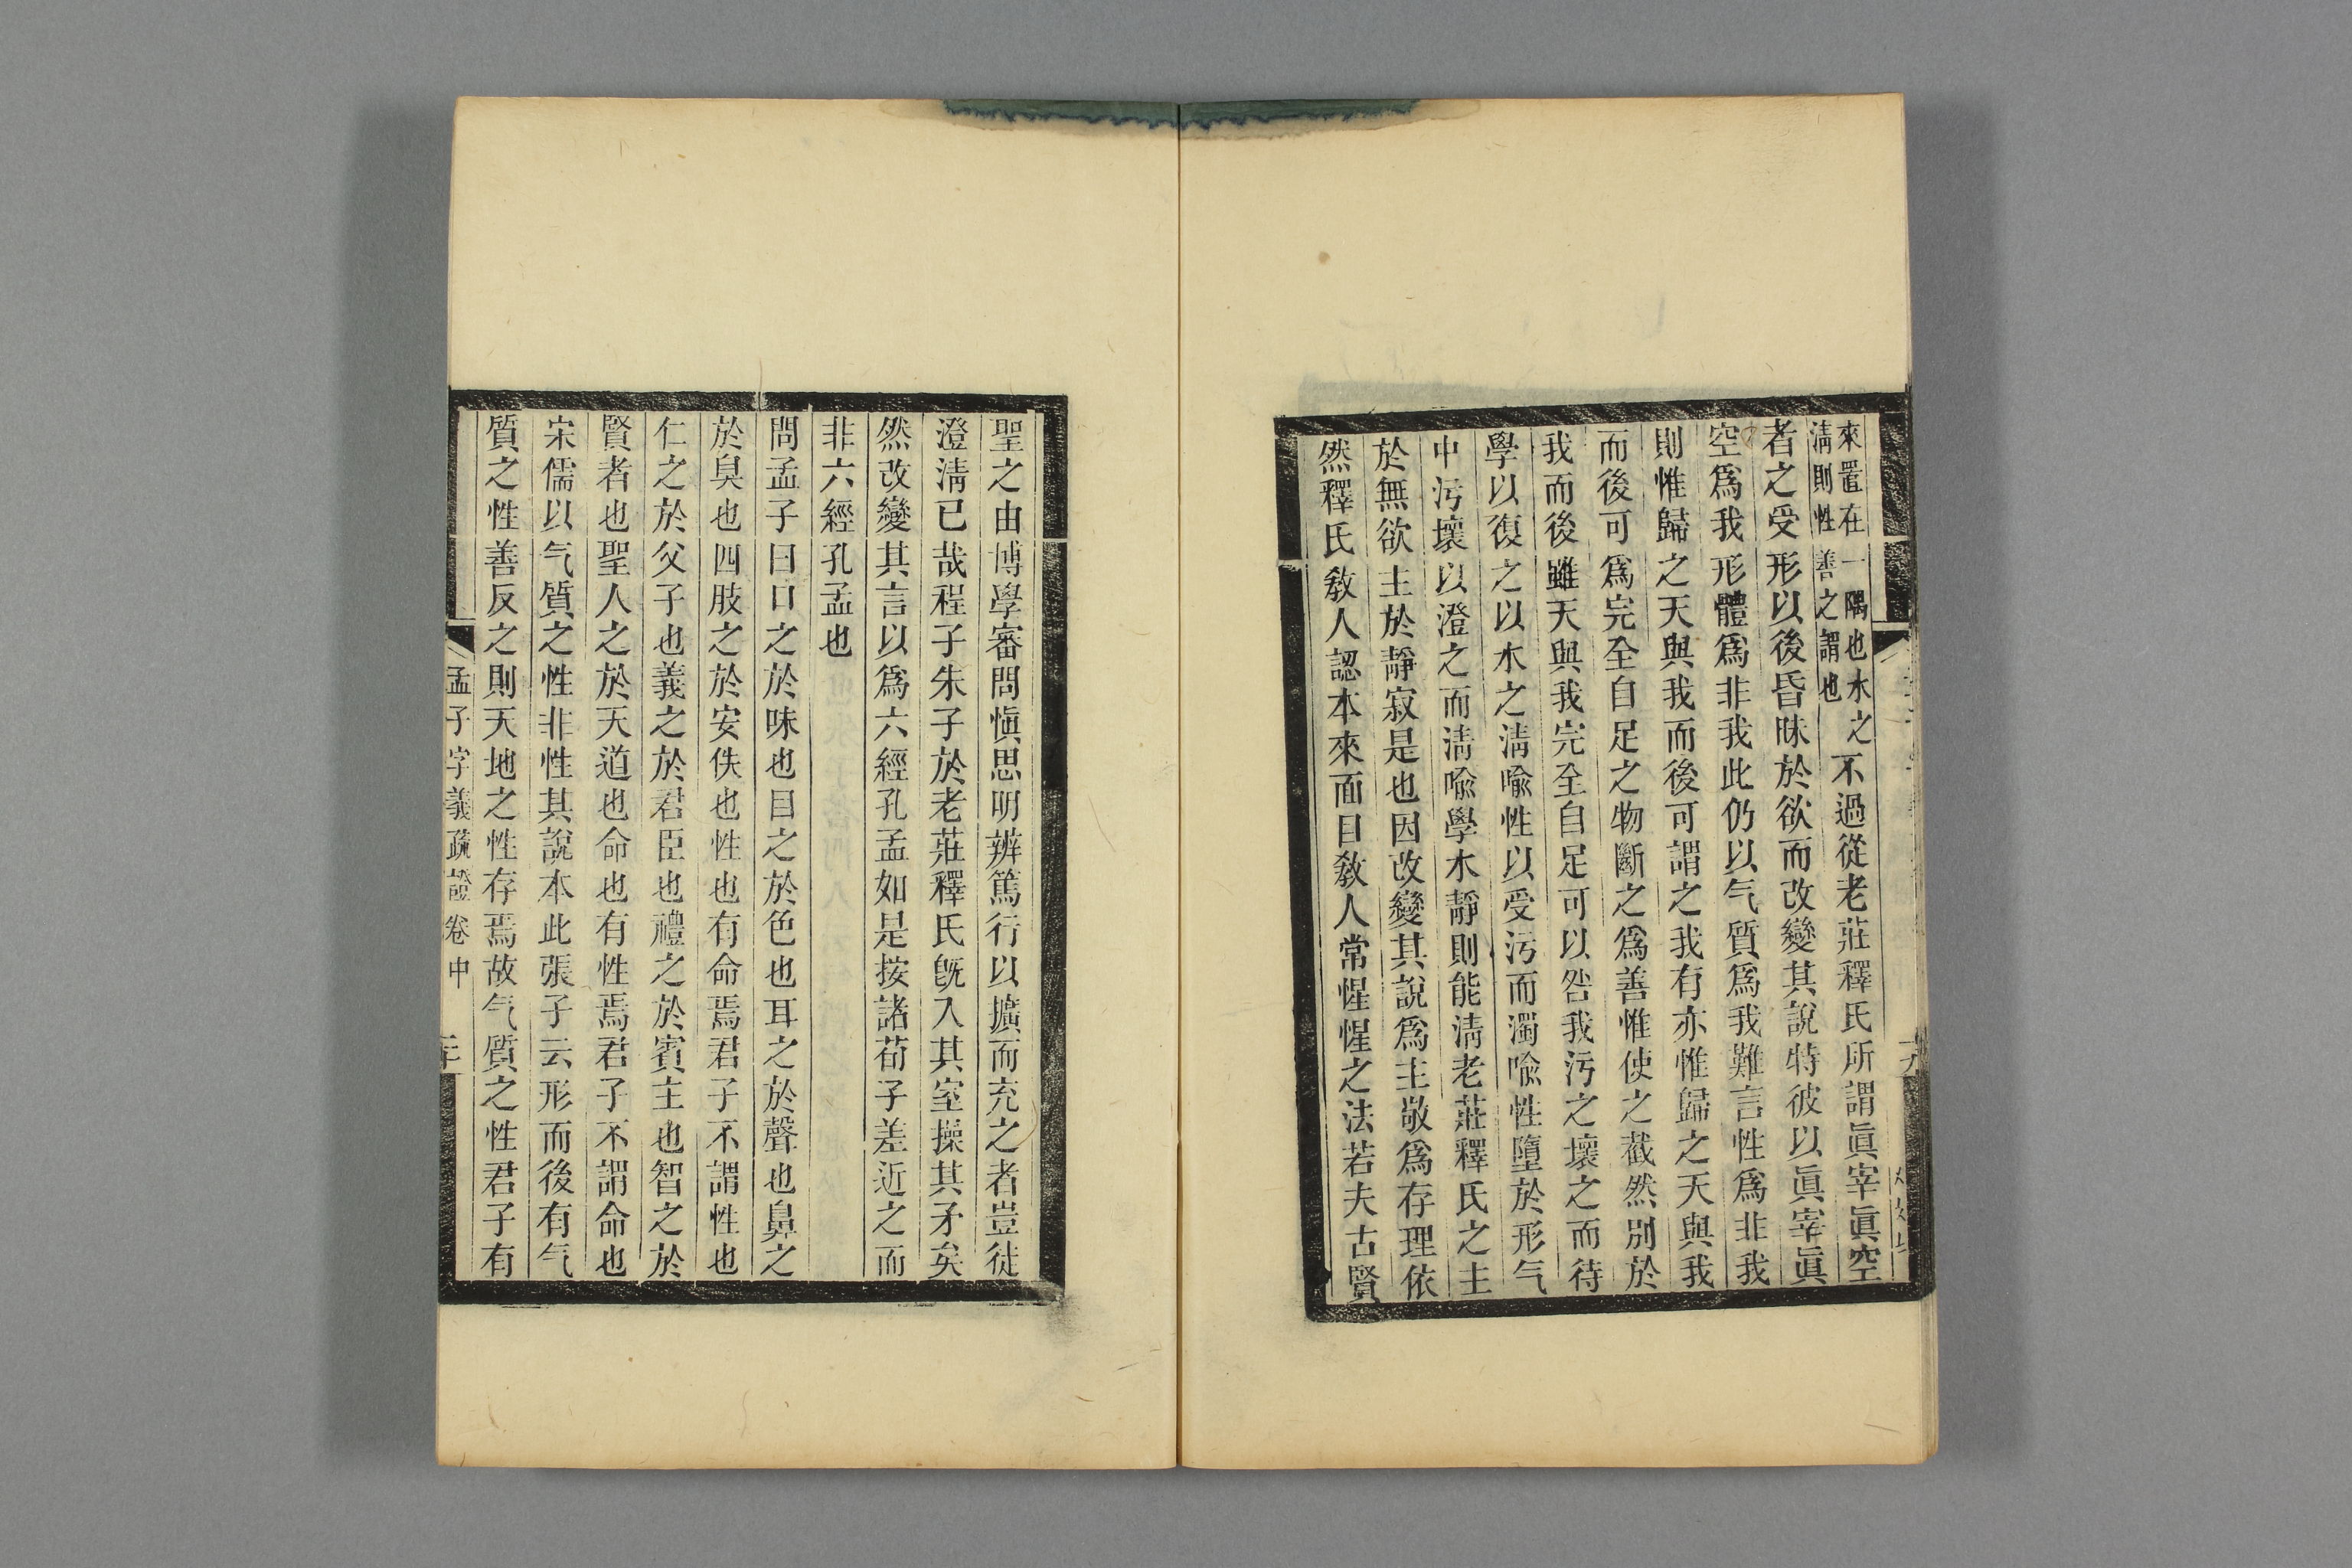 來置在一隅也水之
淸則性善之謂也
不過從老莊釋氏所謂眞宰眞空
者之受形以後昏昧於欲而改變其說特彼以眞宰眞
空爲我形體爲非我此仍以气質爲我難言性爲非我
則惟歸之天與我而後可謂之我有亦惟歸之天與我
而後可爲完全自足之物斷之爲善惟使之截然別於
我而後雖天與我完全自足可以咎我污之壞之而待
學以復之以水之淸喩性以受污而濁喩性墮於形气
中污壞以澄之而淸喩學水靜則能淸老莊釋氏之主
於無欲主於靜寂是也因改變其說爲主敬爲存理依
然釋氏敎人認本來面目敎人常惺惺之法若夫古賢
聖之由博學審問愼思明辨篤行以擴而充之者豈徒
澄淸已哉程子朱子於老莊釋氏旣入其室操其矛矣
然改變其言以爲六經孔孟如是按諸荀子差近之而
非六經孔孟也
問孟子曰口之於味也目之於色也耳之於聲也鼻之
於臭也四肢之於安佚也性也有命焉君子不謂性也
仁之於父子也義之於君臣也禮之於賓主也智之於
賢者也聖人之於天道也命也有性焉君子不謂命也
宋儒以气質之性非性其說本此張子云形而後有气
質之性善反之則天地之性存焉故气質之性君子有
孟子字義疏證卷中